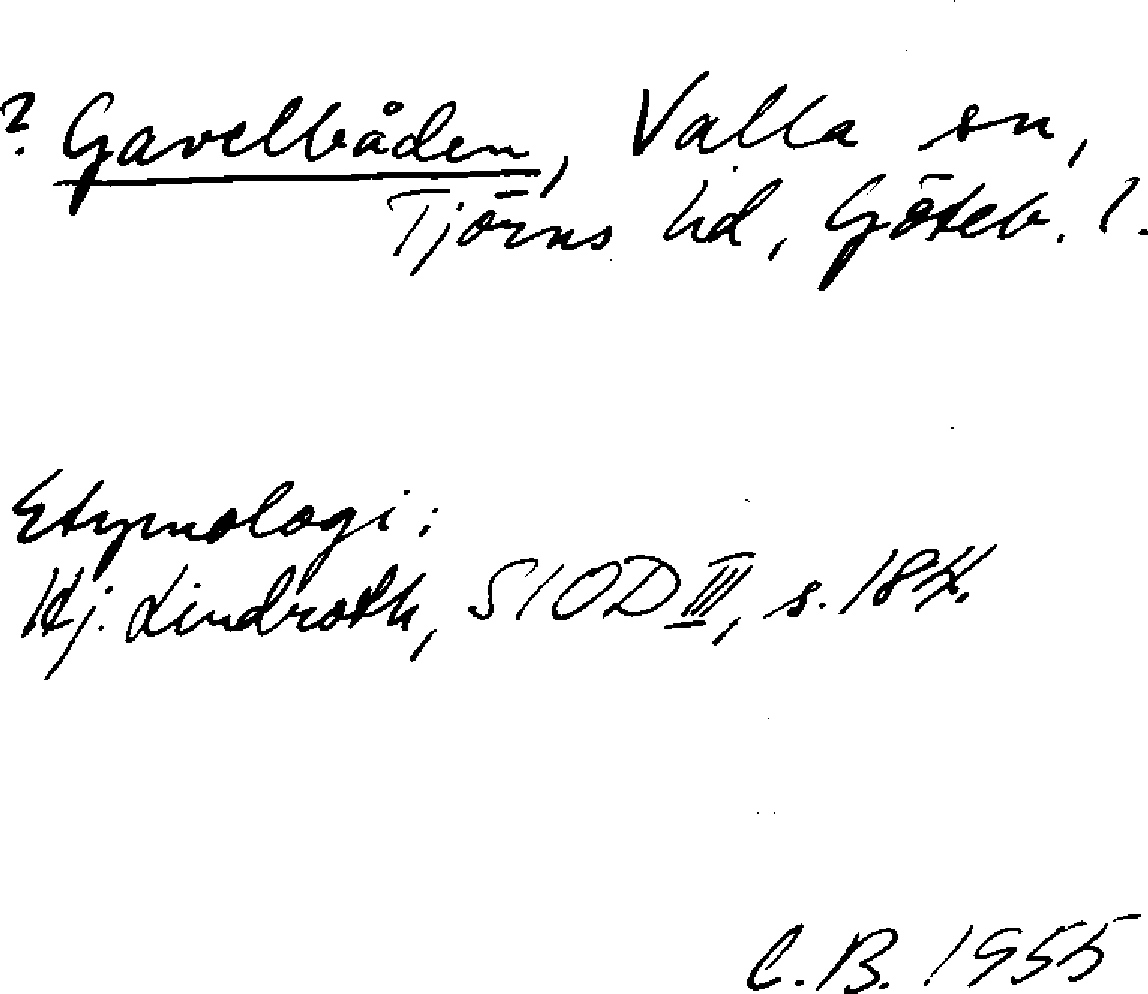 ? Gavelbåden, Valla sn,
Tjörns hd, Göteb. l.
Etymologi:
Hj. Lindroth, SIOD III, s. 184.
C.B. 1955